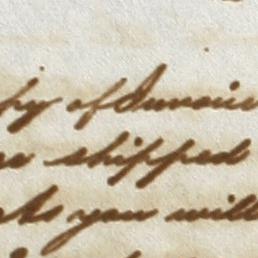 of Invoice
shipped
As you will